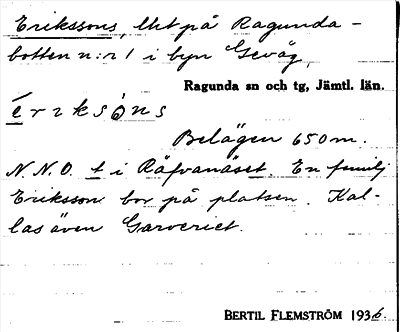 Erikssons, lht på Ragunda-
botten n:r 1 i byn Gevåg,
Ragunda sn och tg, Jämtl. län.
érıksòns
Belägen 650 m.
N.N.O. t i Räfvanäset. En familj
Eriksson bor på platsen. Kal-
las även Garveriet.
BERTIL FLEMSTRÖM 1936.